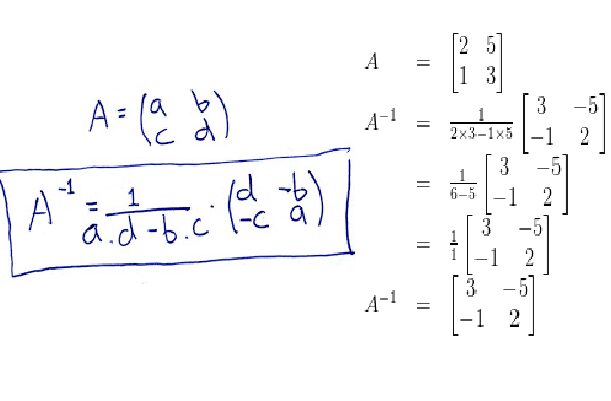 A = (a b
c d)
A⁻¹ = 1/(a.d-b.c) · (d -b
-c a)
A = [2 5
1 3]
A⁻¹ = 1/(2×3−1×5) [3 −5
−1 2]
= 1/(6−5) [3 −5
−1 2]
= 1/1 [3 −5
−1 2]
A⁻¹ = [3 −5
−1 2]